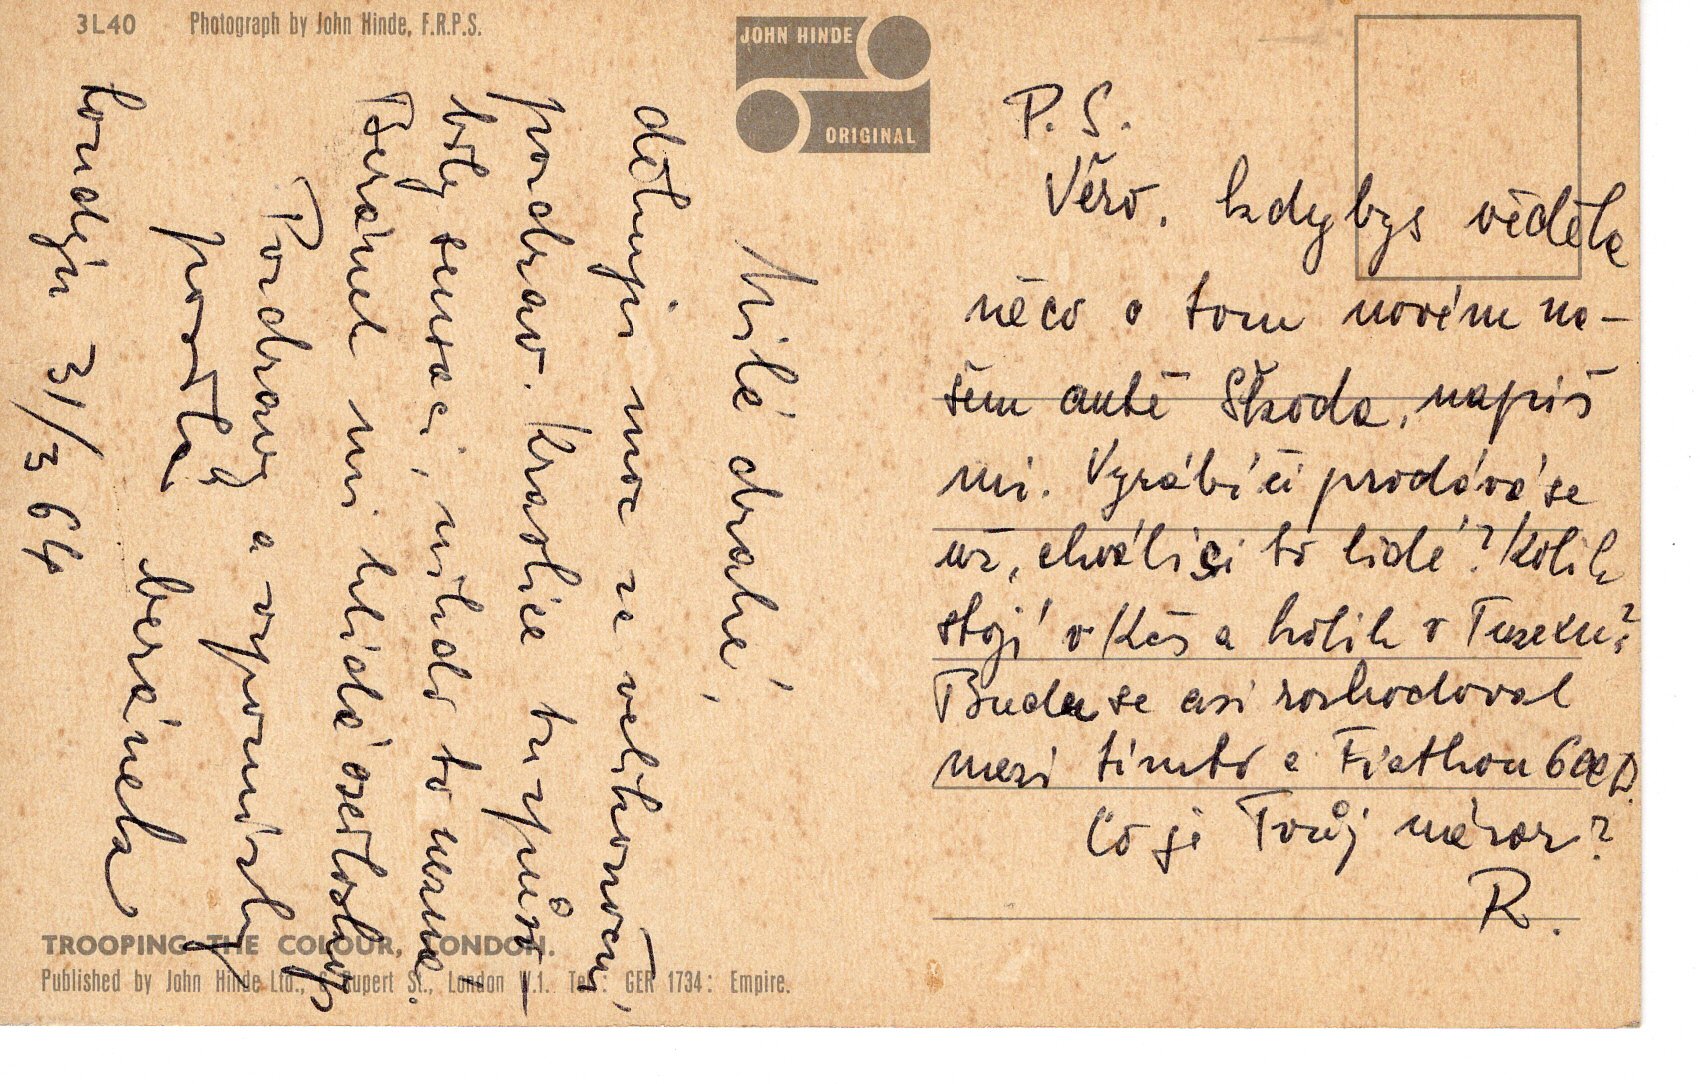 3L40 Photograph by John Hinde, F.R.P.S.
JOHN HINDE
ORIGINAL
Milé drahé,
děkuji moc za velikonoční
pozdrav. Kraslice tu způso-
bily sensaci, nikdo to nezná.
Beránek mi hlídá
Pozdravy a vzpomínky
posílá
Londýn 31/3 64
P.S.
Věro, kdybys věděla
něco o tom novém na-
šem autě Škoda, napiš
mi. Vyrábí či prodává se
už, chválí si to lidé? Kolik
stojí v Kčs a kolik v Tuzexu?
Buda se asi rozhodoval
mezi tímto a Fiatkou 600 D.
Co je Tvůj názor?
R.
TROOPING THE COLOUR, LONDON.
Published by John Hinde Ltd., Rupert St., London W.1. Tel: GER 1734: Empire.